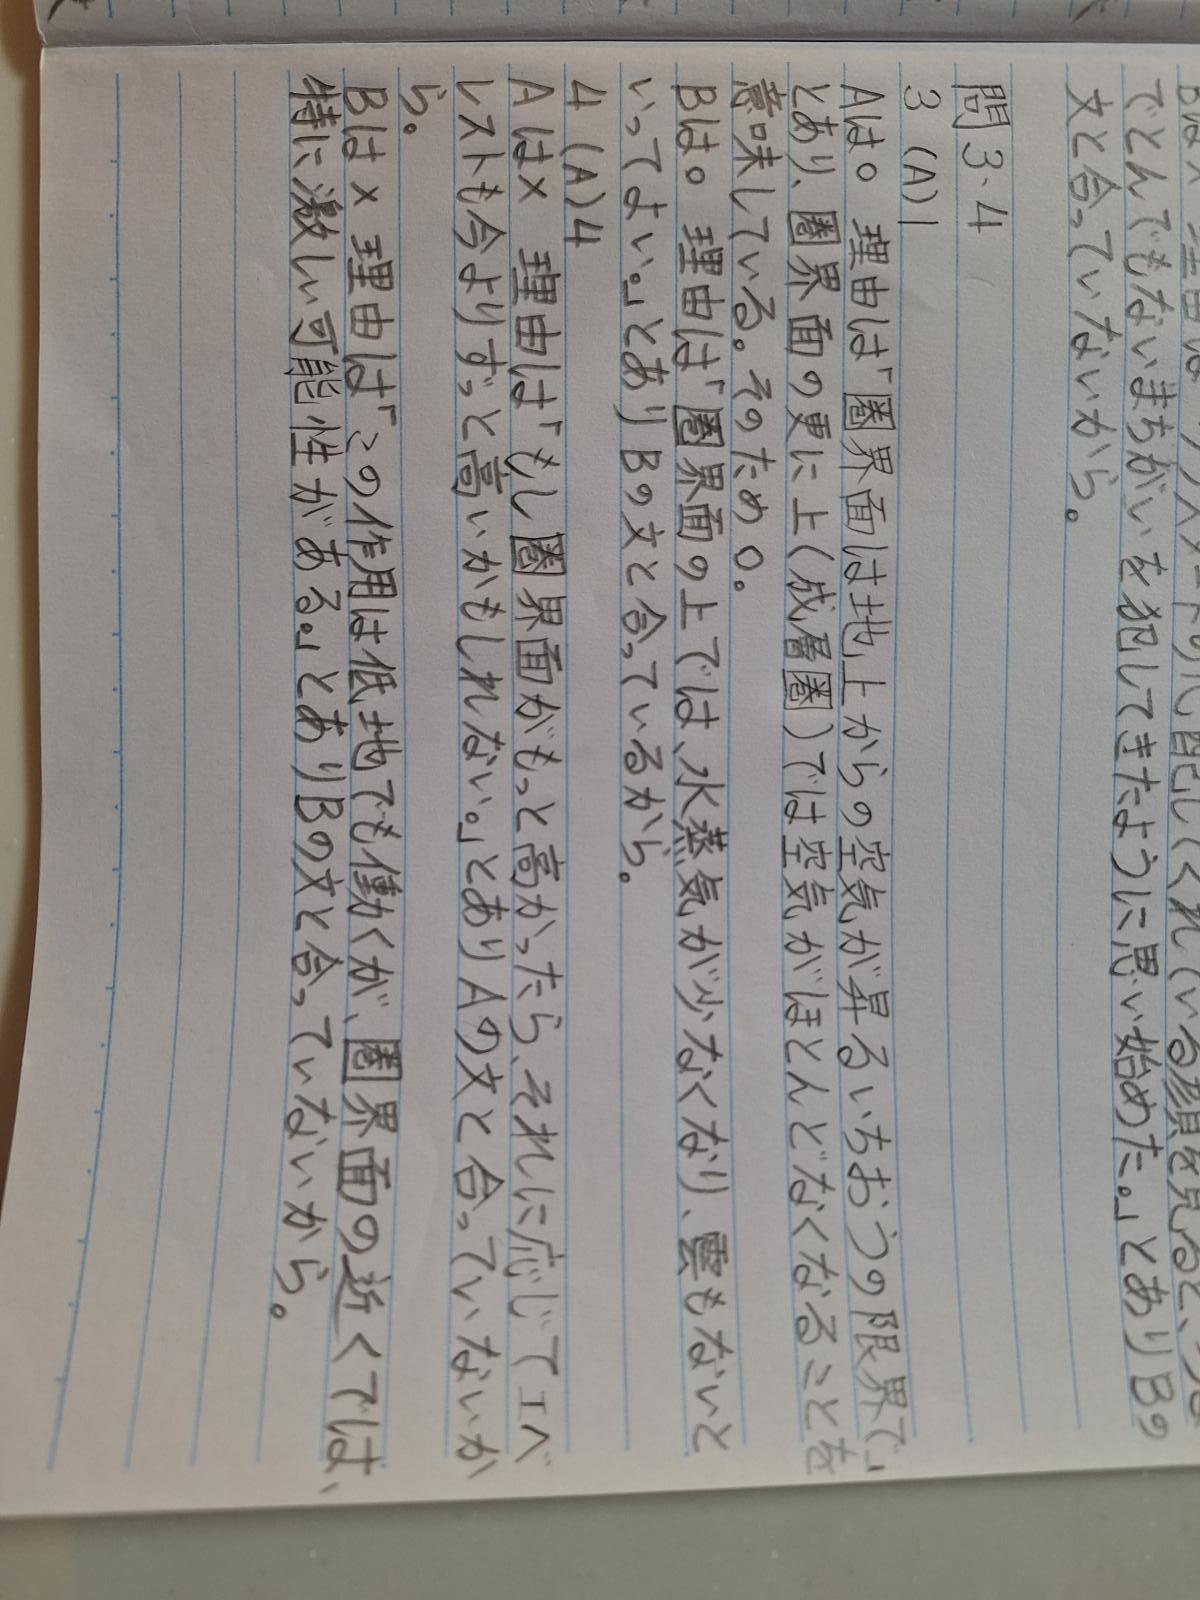 でとんでもないまちがいを犯してきたように思い始めた。」とありBの
文と合っていないから。
問3·4
3 (A)1
Aは○ 理由は「圏界面は地上からの空気が昇るいちおうの限界で」
とあり、圏界面の更に上(成層圏)では空気がほとんどなくなることを
意味している。そのため○。
Bは○ 理由は「圏界面の上では、水蒸気が少なくなり、雲もないと
いってよい。」とありBの文と合っているから。
4 (A)4
Aは× 理由は「もし圏界面がもっと高かったら、それに応じてエベ
レストも今よりずっと高いかもしれない。」とありAの文と合っていないか
ら。
Bは× 理由は「この作用は低地でも働くが、圏界面の近くでは、
特に激しい可能性がある。」とありBの文と合っていないから。